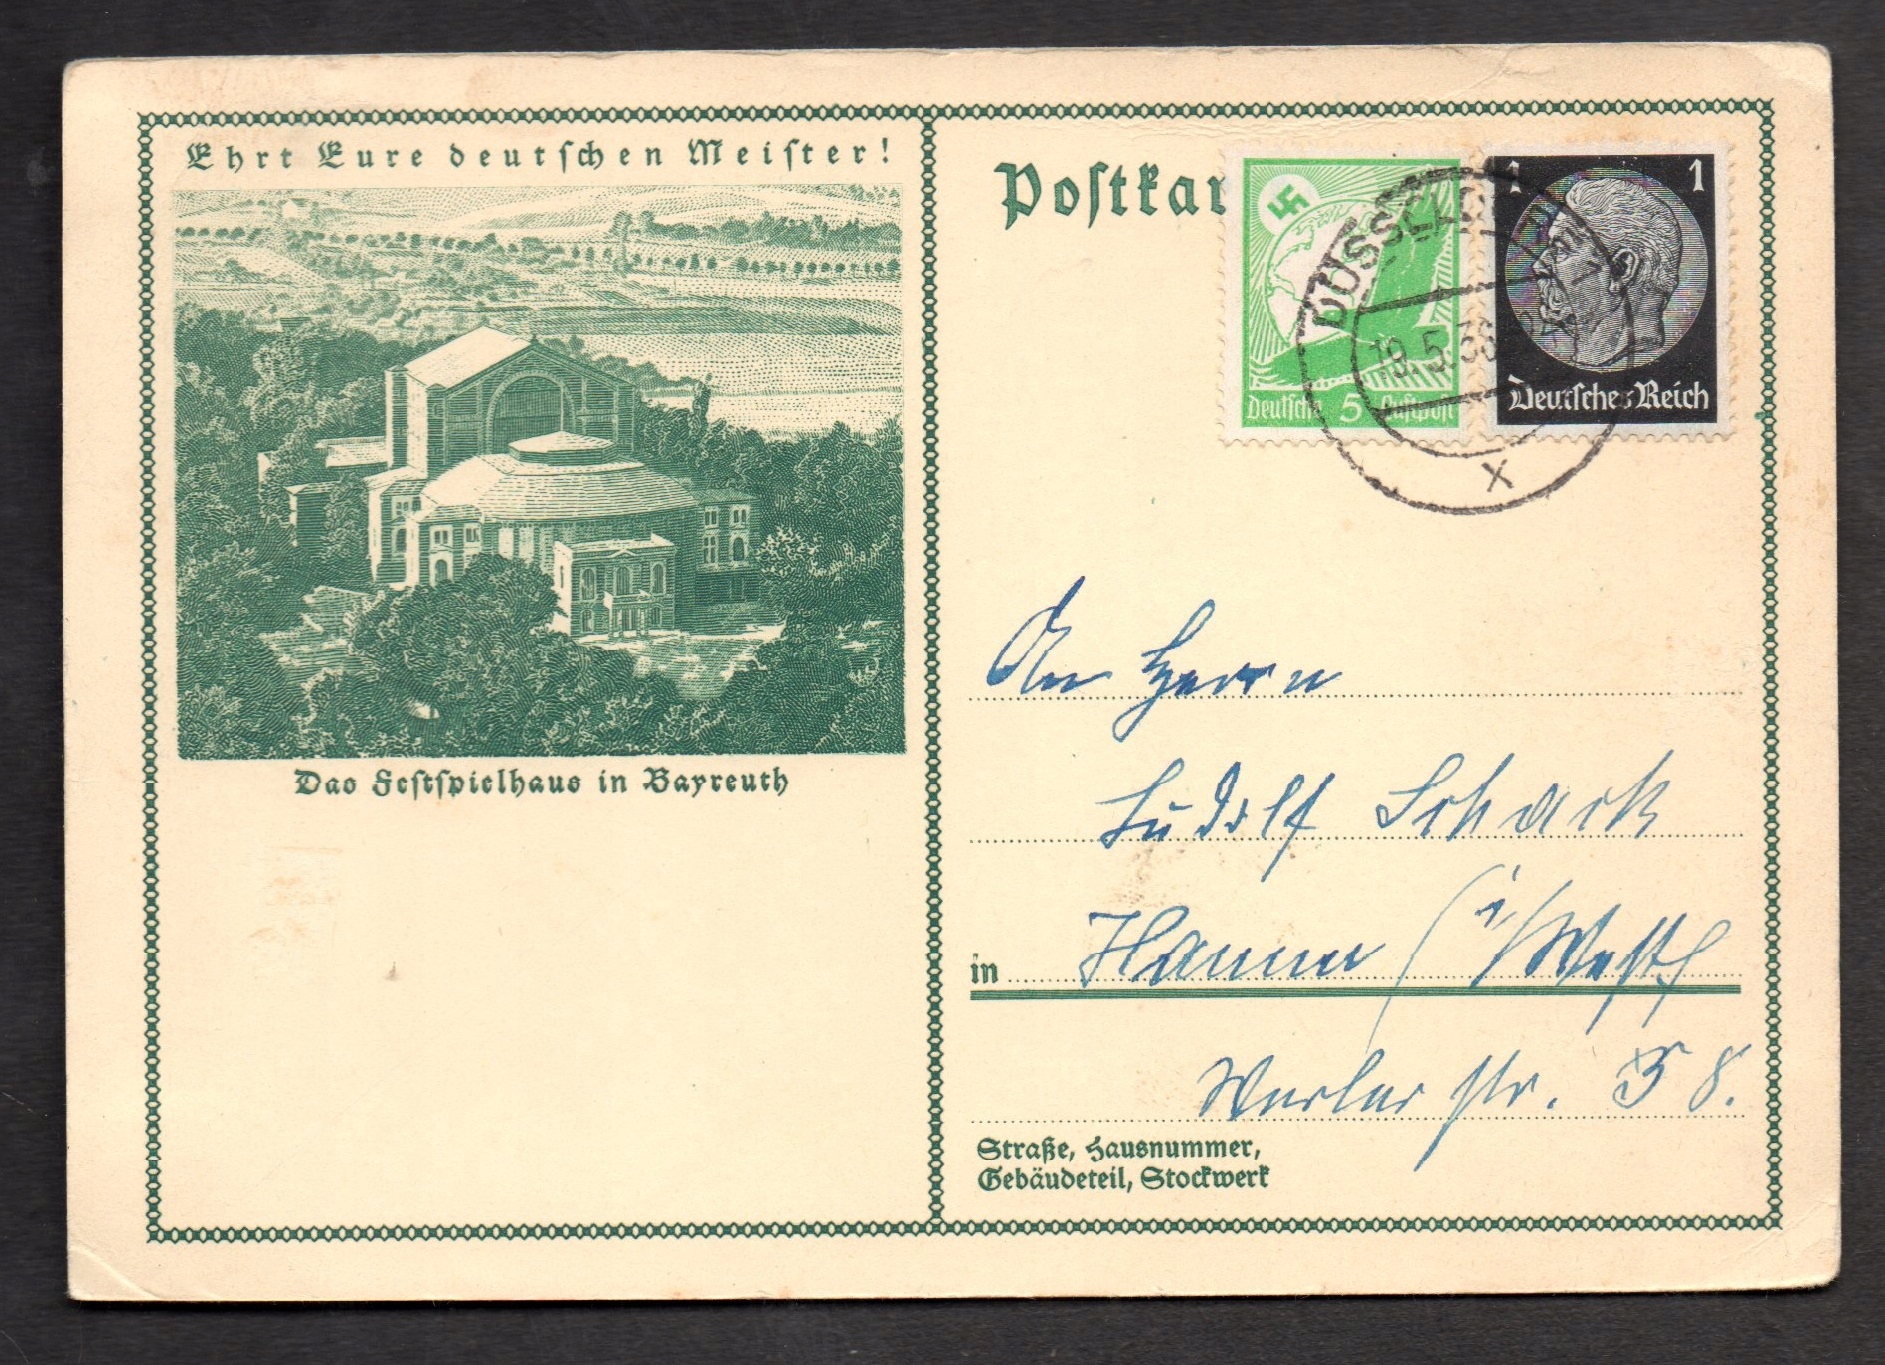 Ehrt Eure deutschen Meister!
Das Festspielhaus in Bayreuth
Postkar
Deutsche 5 Luftpost
1 1
Deutsches Reich
DÜSSELDO
19.5.36
x
An Herrn
Ludolf Schack
in Hamm (i/Westf
Werler str. 58.
Straße, Hausnummer,
Gebäudeteil, Stockwerk